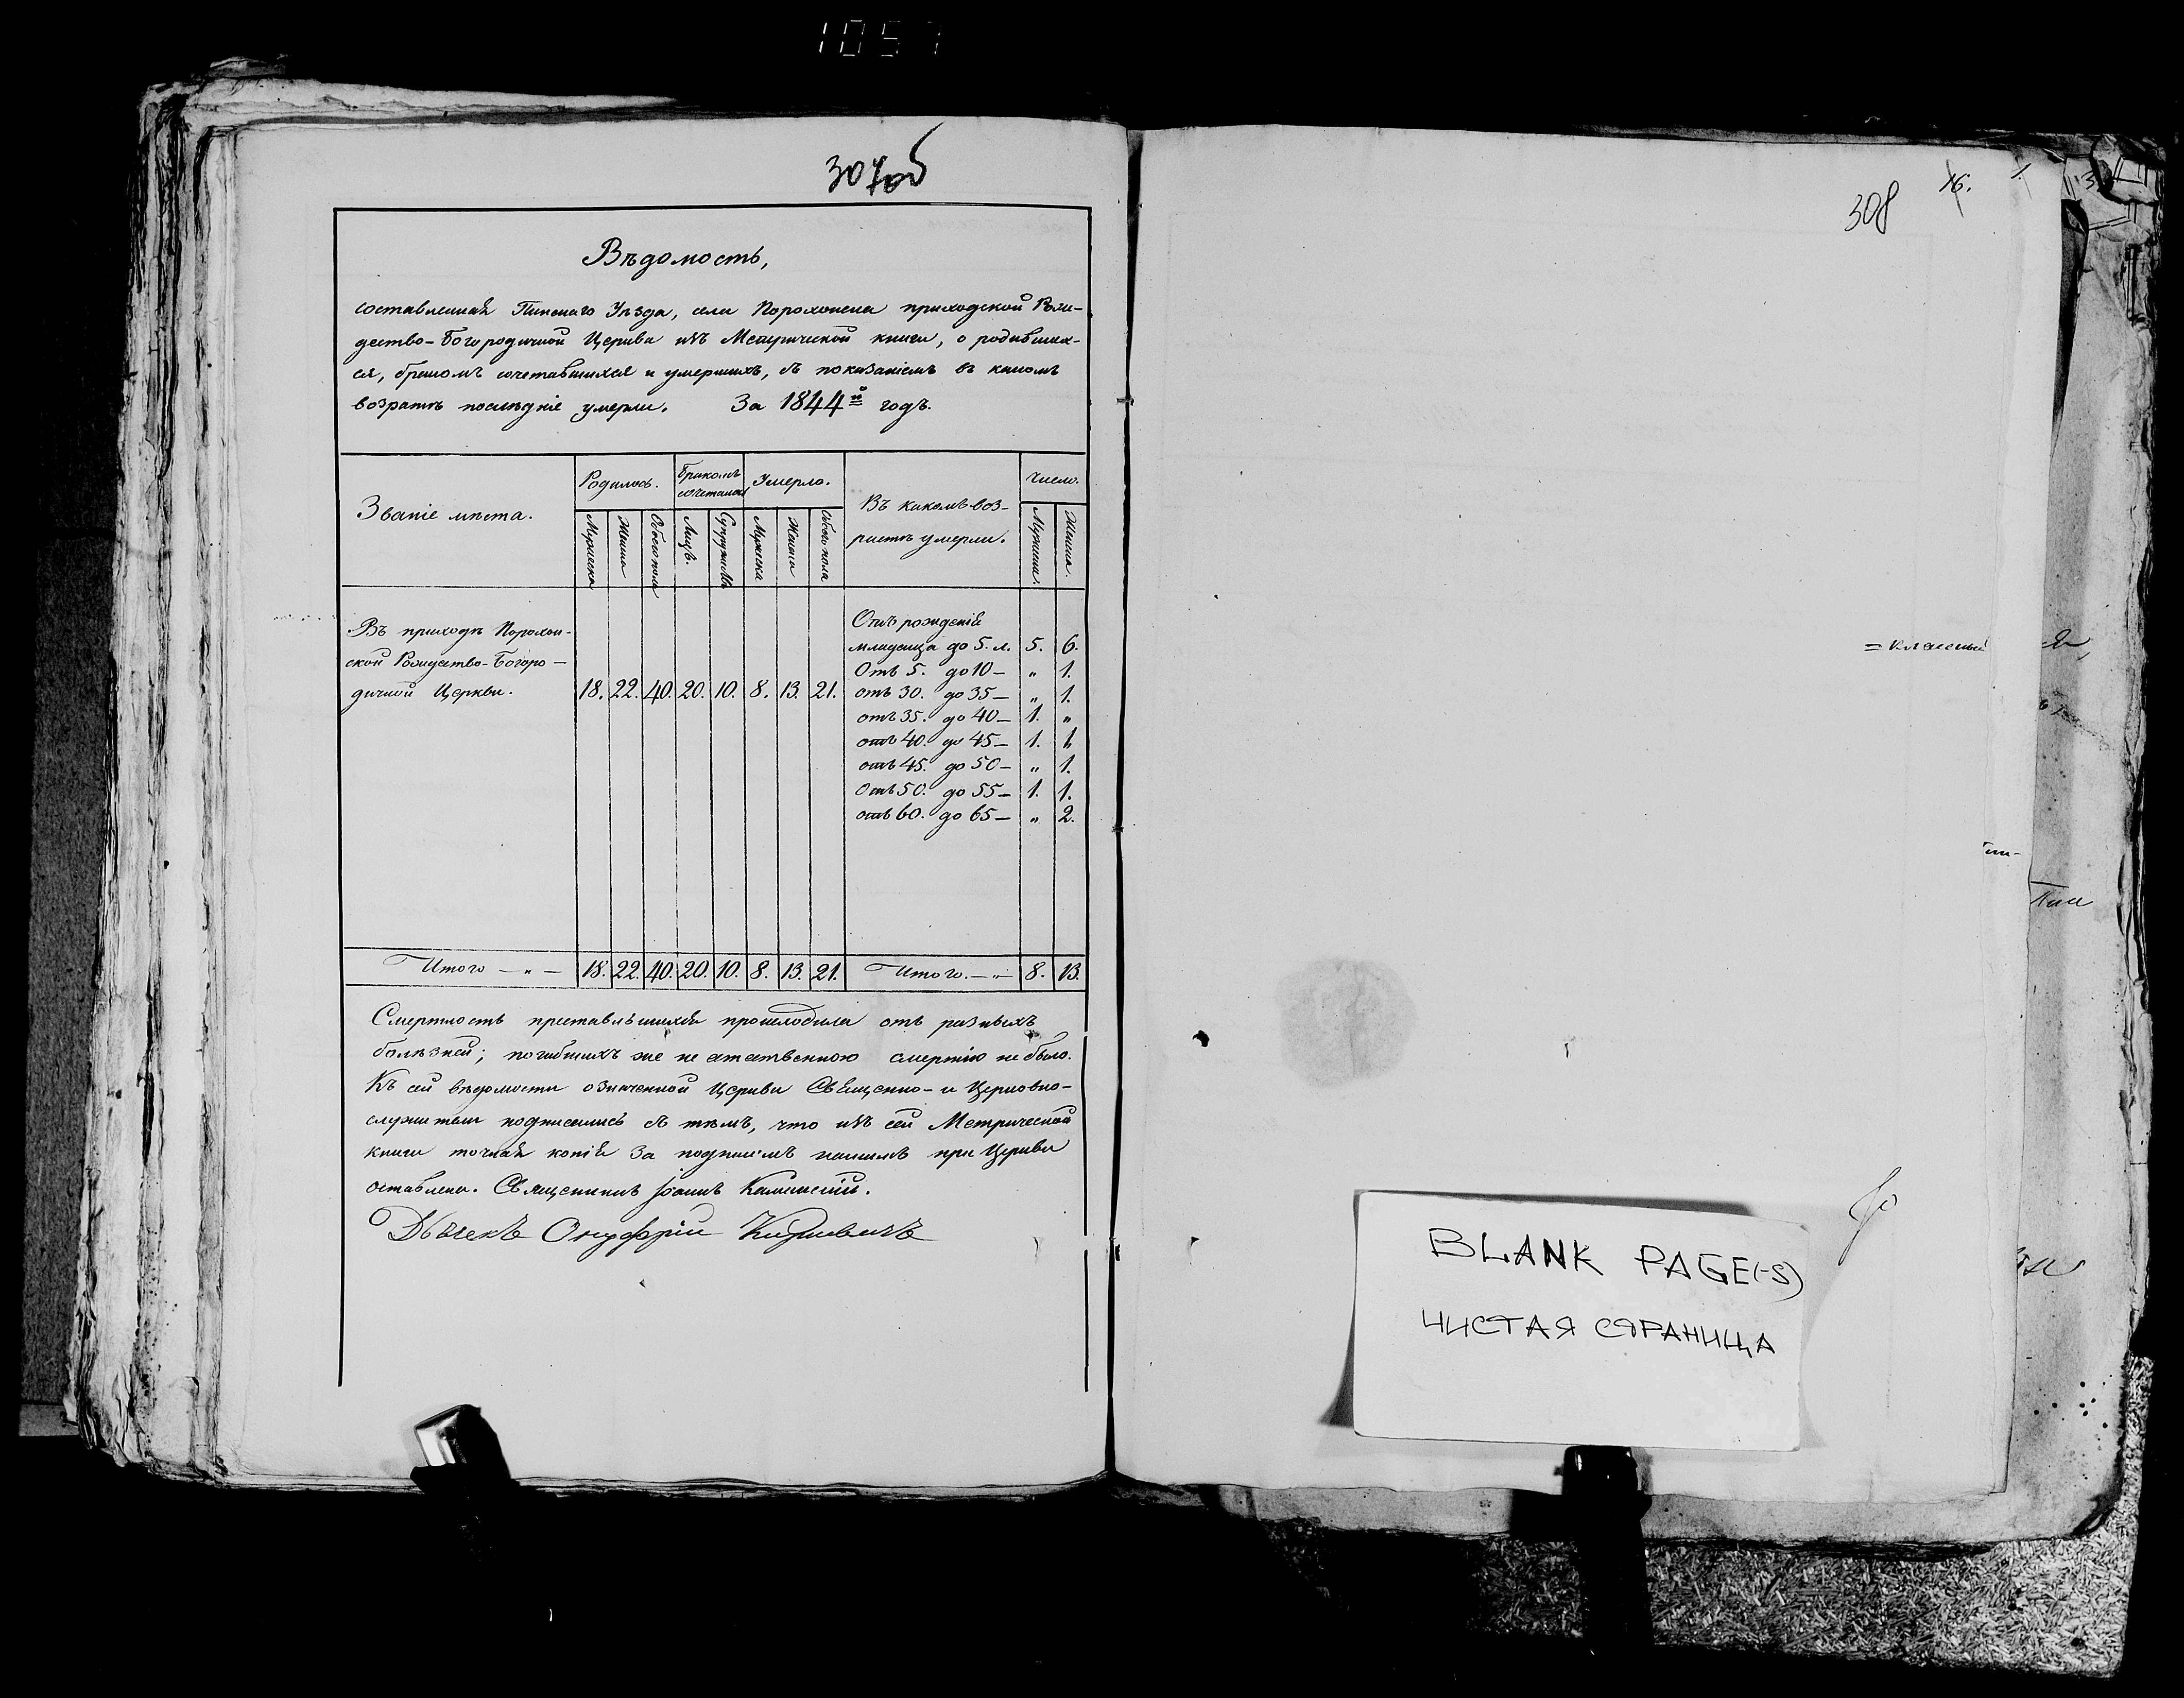 1057
307об
Вѣдомость,
составленная Пинскаго Уѣзда, села Порохонска приходской Рож-
дество-Богородичной Церкви изъ Метрической книги, о родивших-
ся, бракомъ сочетавшихся и умершихъ, съ показаніемъ въ какомъ
возратѣ послѣдніе умерли. За 1844й годъ.
Званіе мѣста.
Родилось. Бракомъ сочеталось Умерло.
Въ какомъ воз-
растѣ умерли.
Число.
Мужеска Женска Обоего пола Лицъ. Супружествъ Мужеска Женска Обоего пола Мужеска. Женска.
Въ приходѣ Порохон-
ской Рождество-Богоро-
дичной Церкви. 18. 22. 40. 20. 10. 8. 13. 21.
Отъ рожденія
младенца до 5. л. 5. 6.
Отъ 5. до 10 — „ 1.
отъ 30. до 35 — „ 1.
отъ 35. до 40 — 1. „
отъ 40. до 45 — 1. 1.
отъ 45. до 50 — „ 1.
Отъ 50. до 55 — 1. 1.
отъ 60. до 65 — „ 2.
Итого — „ — 18. 22. 40. 20. 10. 8. 13. 21. Итого. — „ 8. 13.
Смертность преставльшихся происходила отъ разныхъ
болѣзней; погибшихъ же не етественною смертію не было.
Къ сей вѣдомости означенной Церкви Священно- и Церковно-
служители подписались съ тѣмъ, что изъ сей Метрической
книги точная копія за подписомъ нашимъ при Церкви
оставлена. Священникъ Іоаннъ Каминскій.
Дьячекъ Онуфрій
308
16.
BLANK PAGE(-S)
ЧИСТАЯ СТРАНИЦА